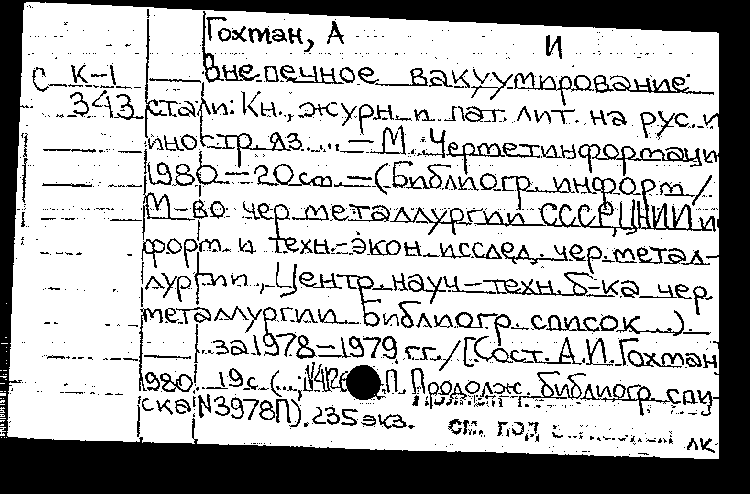 Гохман, А И
С К-1 Внепечное вакуумирование
343 стали: Кн., журн. и пат. лит. на рус. и
иностр. яз. ... — М.: Черметинформаци
1980 — 20 см. — (Библиогр. информ /
М-во чер. металлургии СССР, ЦНИИ и
форм. и техн.-экон. исслед. чер. метал-
лургии, Центр. науч-техн. б-ка чер
металлургии. Библиогр. список ...).
... за 1978—1979 гг. / [Сост. А.И. Гохман
1980. 19 с. (...; П. Продолж. библиогр. спи-
ска N3978П). 235 экз.
см. под лк